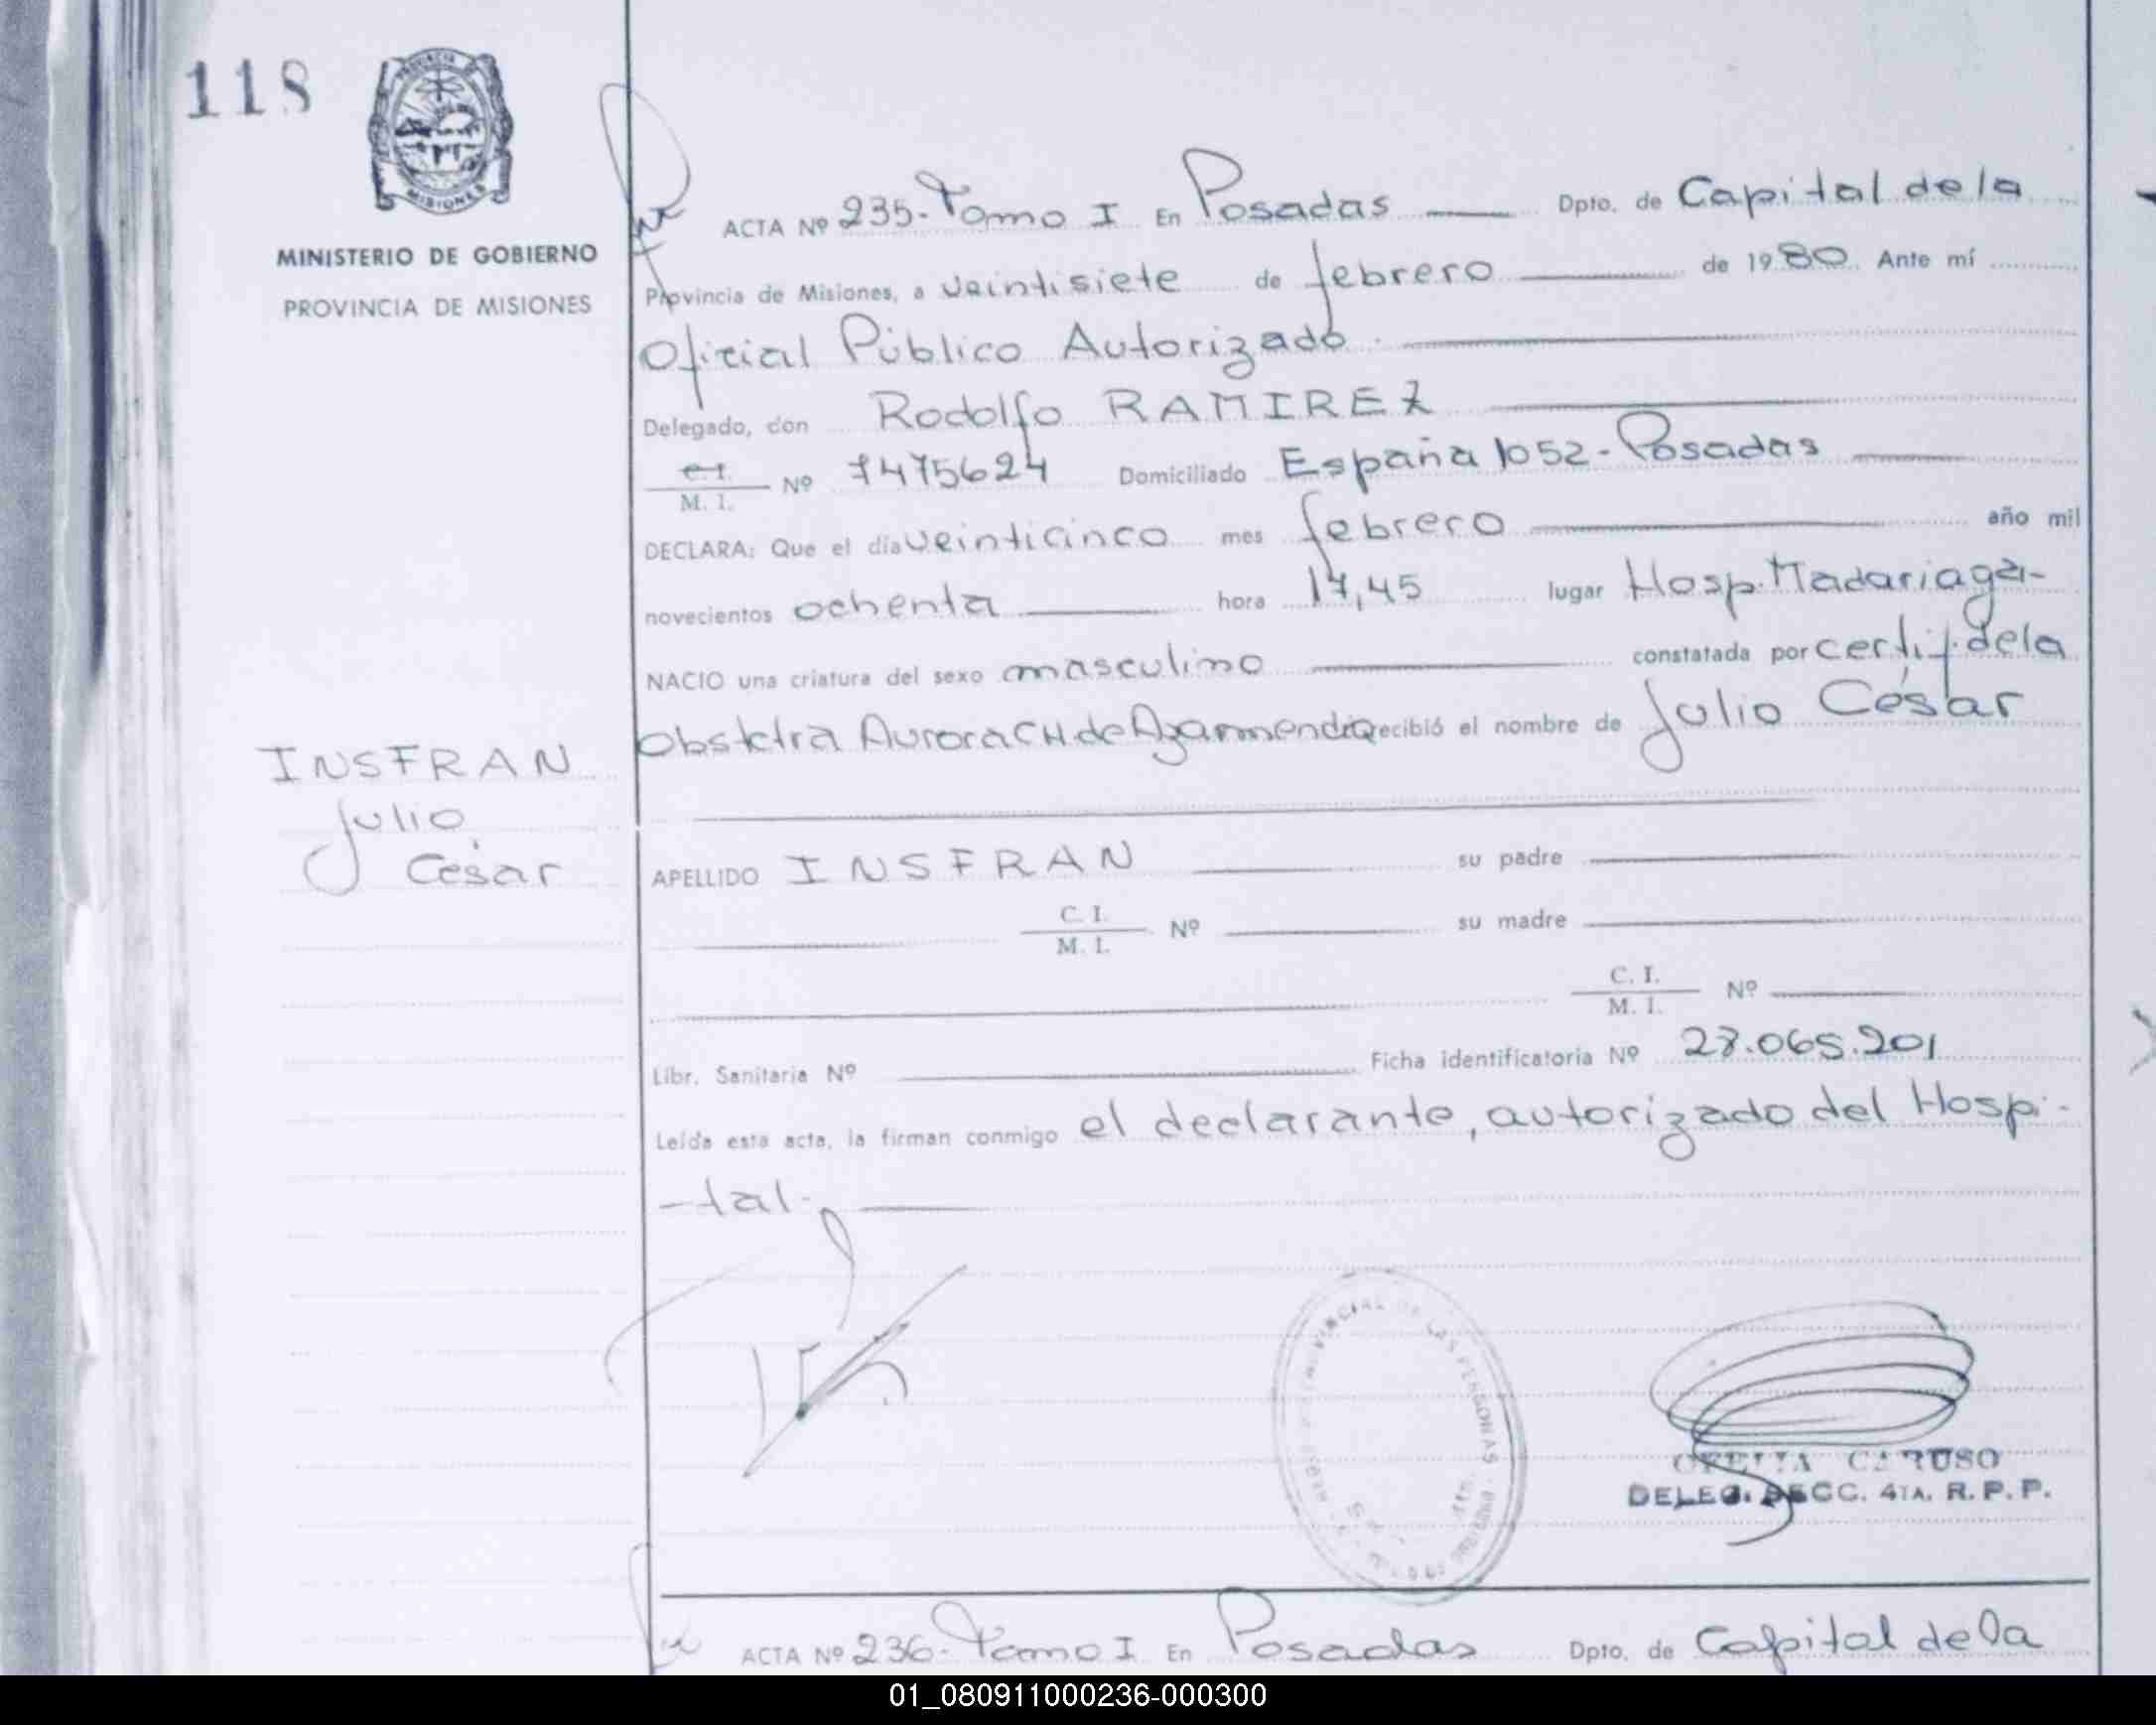 118
PROVINCIA
MISIONES
MINISTERIO DE GOBIERNO
PROVINCIA DE MISIONES
ACTA Nº 235-Tomo I En Posadas Dpto. de Capital de la
Provincia de Misiones, a veintisiete de febrero de 1980. Ante mí
Oficial Público Autorizado.
Delegado, don Rodolfo RAMIREZ
C.I. M. I. Nº 7475624 Domiciliado España 1052-Posadas
DECLARA: Que el día veinticinco mes febrero año mil
novecientos ochenta hora 17,45 lugar Hosp. Madariaga-
NACIO una criatura del sexo masculino constatada por certif. de la
Obstetra Aurora CH de recibió el nombre de Julio César
INSFRAN
Julio
César
APELLIDO INSFRAN su padre
C. I. M. I. Nº su madre
C. I. M. I. Nº
Libr. Sanitaria Nº Ficha identificatoria Nº 28.065.201
Leída esta acta, la firman conmigo el declarante, autorizado del Hospi-
-tal.
PROVINCIAL DE LAS PERSONAS
CARUSO
DELEG. SECC. 4TA. R. P. P.
ACTA Nº 236-Tomo I En Posadas Dpto. de Capital de la
01_080911000236-000300